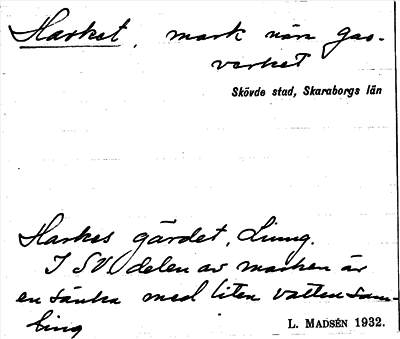 Harket, mark nära gas-
verket
Skövde stad, Skaraborgs län
Harkes gärdet, Ljung.
I SV delen av marken är
en sänka med liten vattensam-
ling
L. MADSÉN 1932.